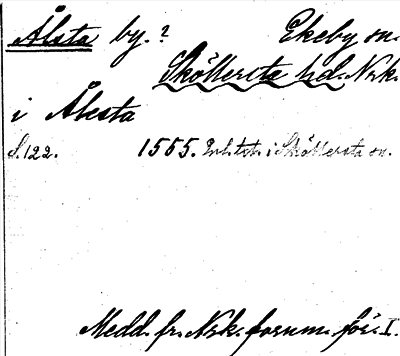 Ålsta by.? Ekeby sn.
Sköllersta hd. Nrk.
i Ålesta
S.122. 1555. i Sköllersta sn.
Medd. fr. Nrk. fornm. för. I.